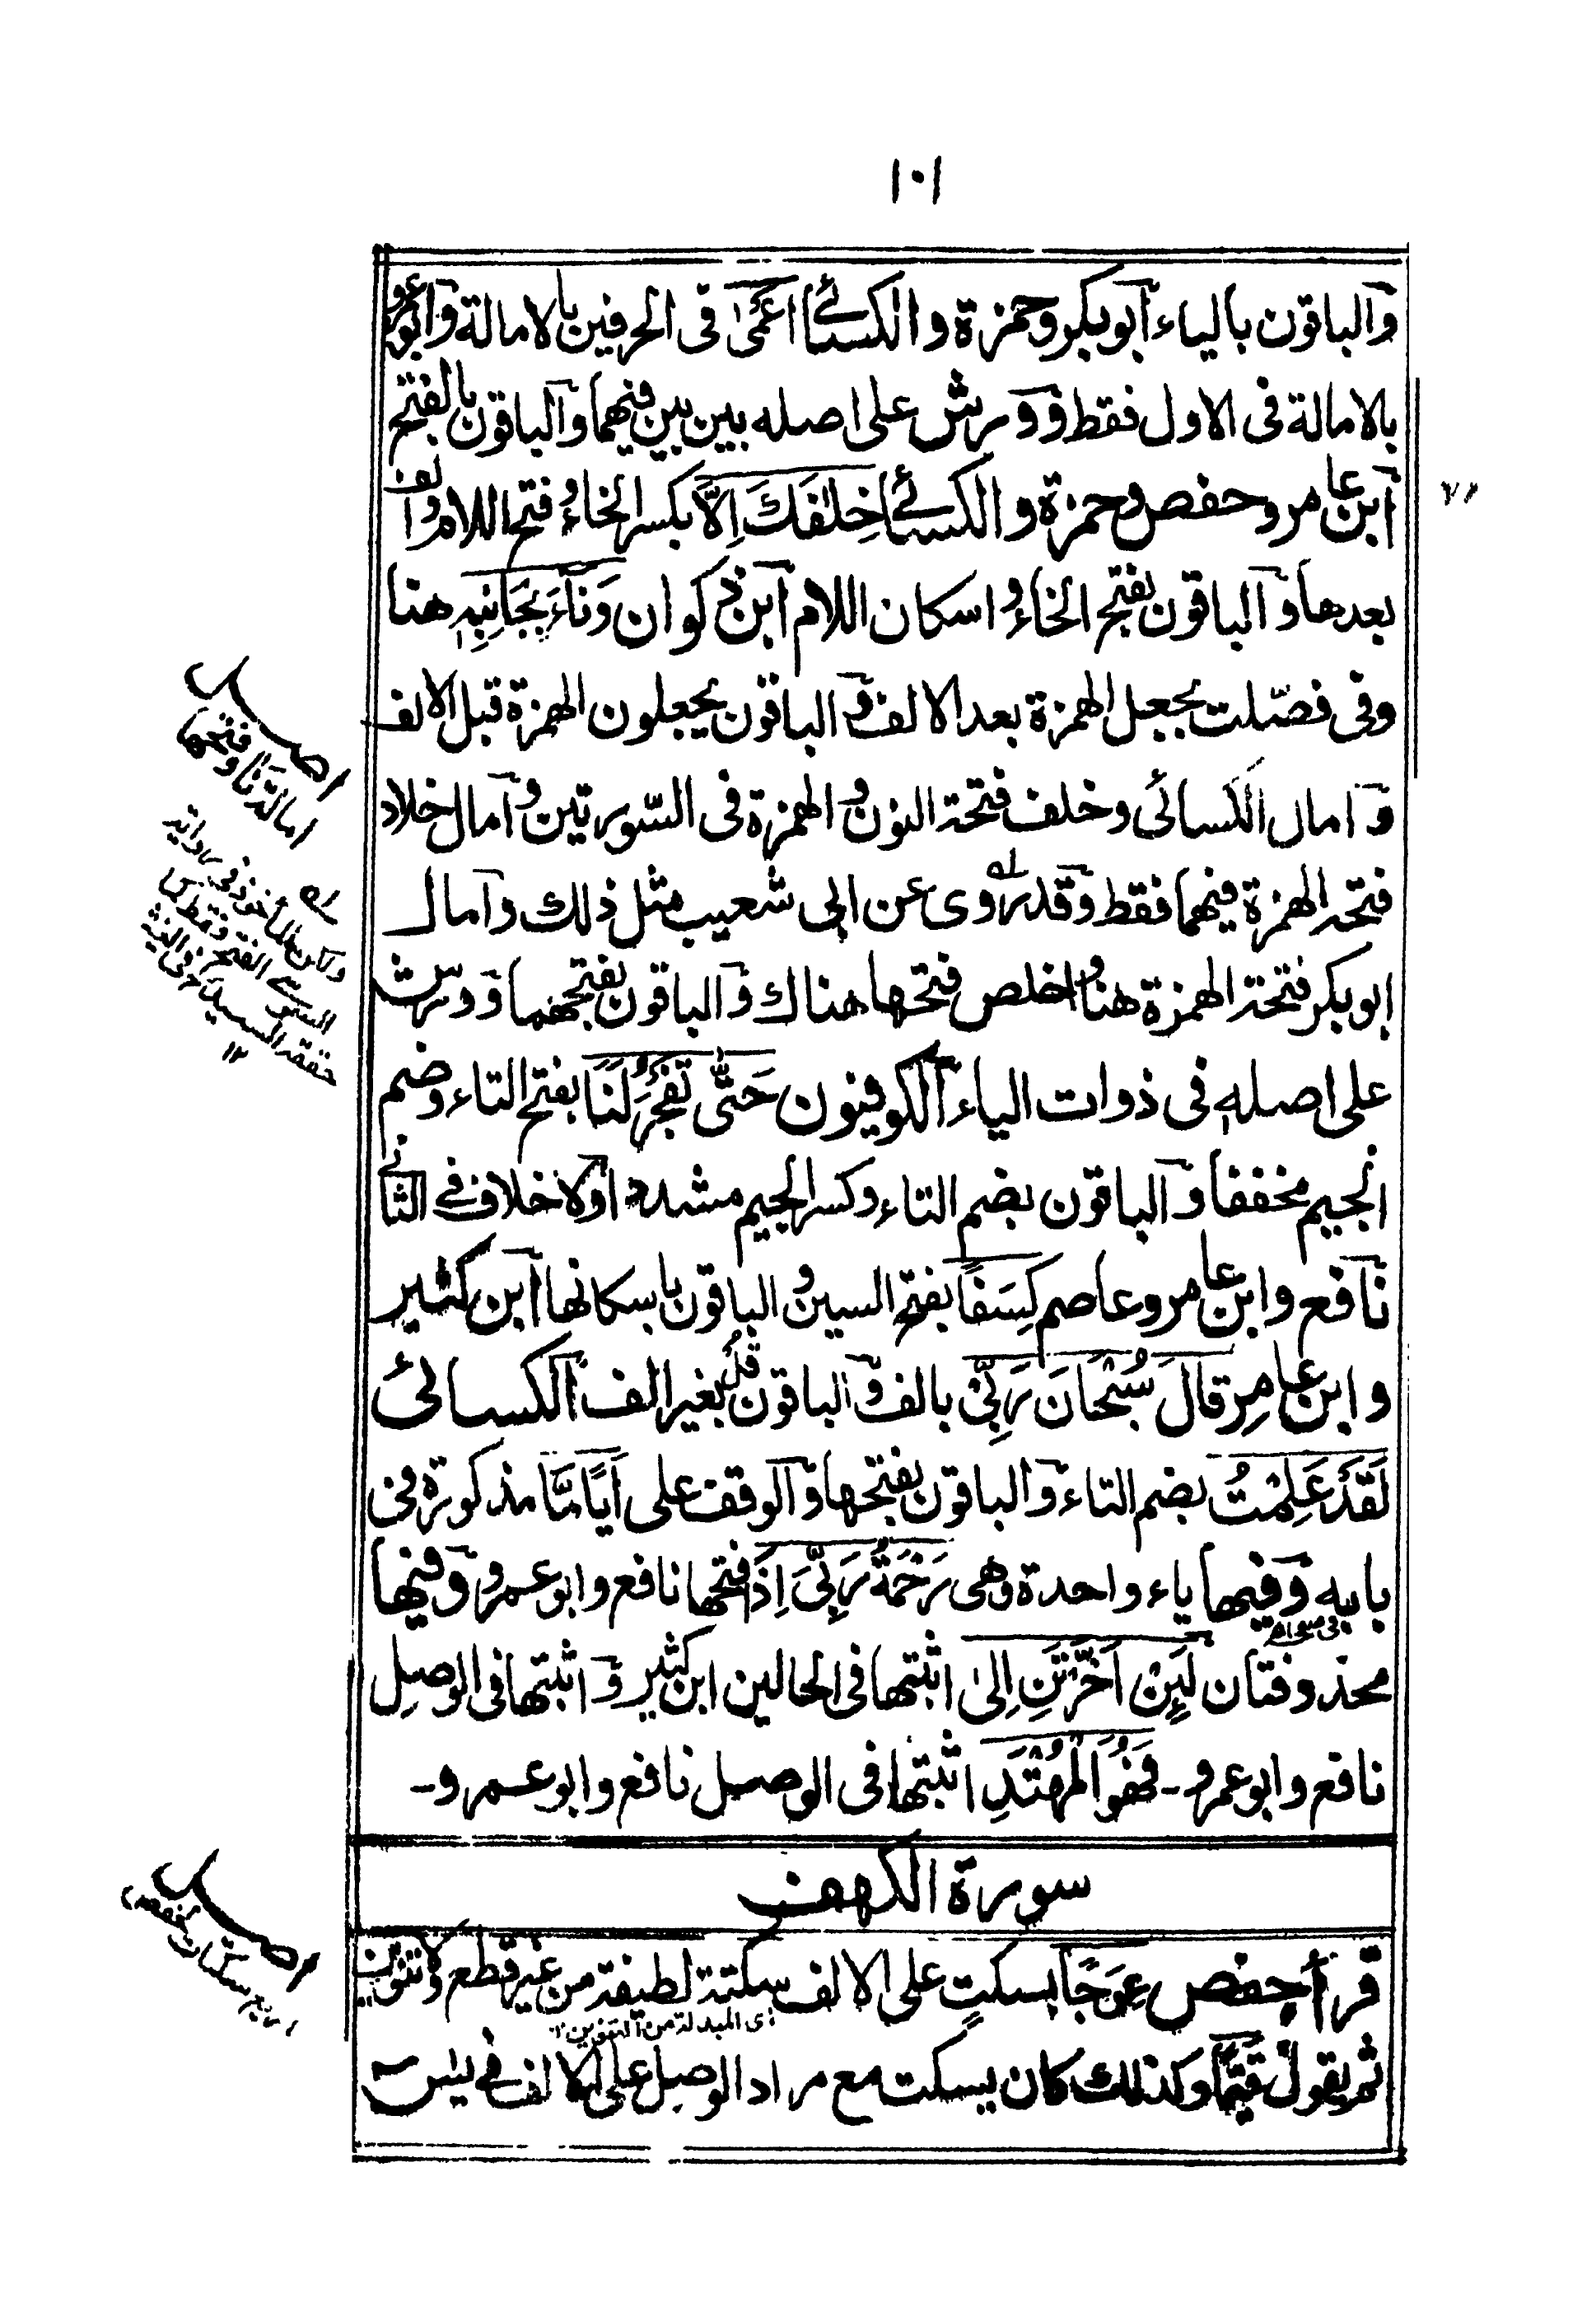 ١٠١
والباقون بالياء ابو بكر وحمزة والكسائي اعمى في الحرفين بالامالة وابو عمرو
بالامالة في الاول فقط وورش على اصله بين بين فيهما والباقون بالفتح
ابن عامر وحفص وحمزة والكسائي خِلٰفَكَ اِلَّا بكسر الخاء وفتح اللام والف
بعدها والباقون بفتح الخاء واسكان اللام ابن ذكوان وَنَاءَ بِجَانِبِهٖ هنا
وفي فصّلت يجعل الهمزة بعد الالف والباقون يجعلون الهمزة قبل الالف
وامال الكسائي وخلف فتحة النون والهمزة في السّورتين وامال خلاد
فتحة الهمزة فيهما فقط وقد روى عن ابى شعيب مثل ذلك وامال
ابو بكر فتحة الهمزة هنا واخلص فتحها هناك والباقون بفتحهما وورش
على اصله في ذوات الياء الكوفيون حَتّٰى تَفْجُرَ لَنَا بفتح التاء وضم
الجيم مخففا والباقون بضم التاء وكسر الجيم مشددا ولا خلاف في الثاني
نافع وابن عامر وعاصم كِسَفًا بفتح السين والباقون باسكانها ابن كثير
وابن عامر قَالَ سُبْحَانَ رَبِّيْ بالف والباقون قُلْ بغير الف الكسائي
لَقَدْ عَلِمْتُ بضم التاء والباقون بفتحها والوقف على اَيًّا مَّا مذكورة في
بابه وفيها ياء واحدة وهى رَحْمَةُ رَبِّىَ اِذًا فتحها نافع وابو عمرو وفيها
محذوفتان لَئِنْ اَخَّرْتَنِ اِلىٰ اثبتها في الحالين ابن كثير واثبتها في الوصل
نافع وابو عمرو - فَهُوَ الْمُهْتَدِ اثبتها في الوصل نافع وابو عمرو -
سورة الكهف
قرأ حفص عِوَجًا بسكتٍ على الالف سكتة لطيفة من غير قطع ولا تنوين
اى المبدلة من التنوين ١٢
ثم يقول قَيِّمًا وكذلك كان يسكت مع مراد الوصل على الالف في يٰس
اصل
امالة نَا وفتحها
ولكن المأخوذ في رواية
السوسي الفتح فقط كما
حققه السيد
١٢
اصل
اربع سكتات لحفص